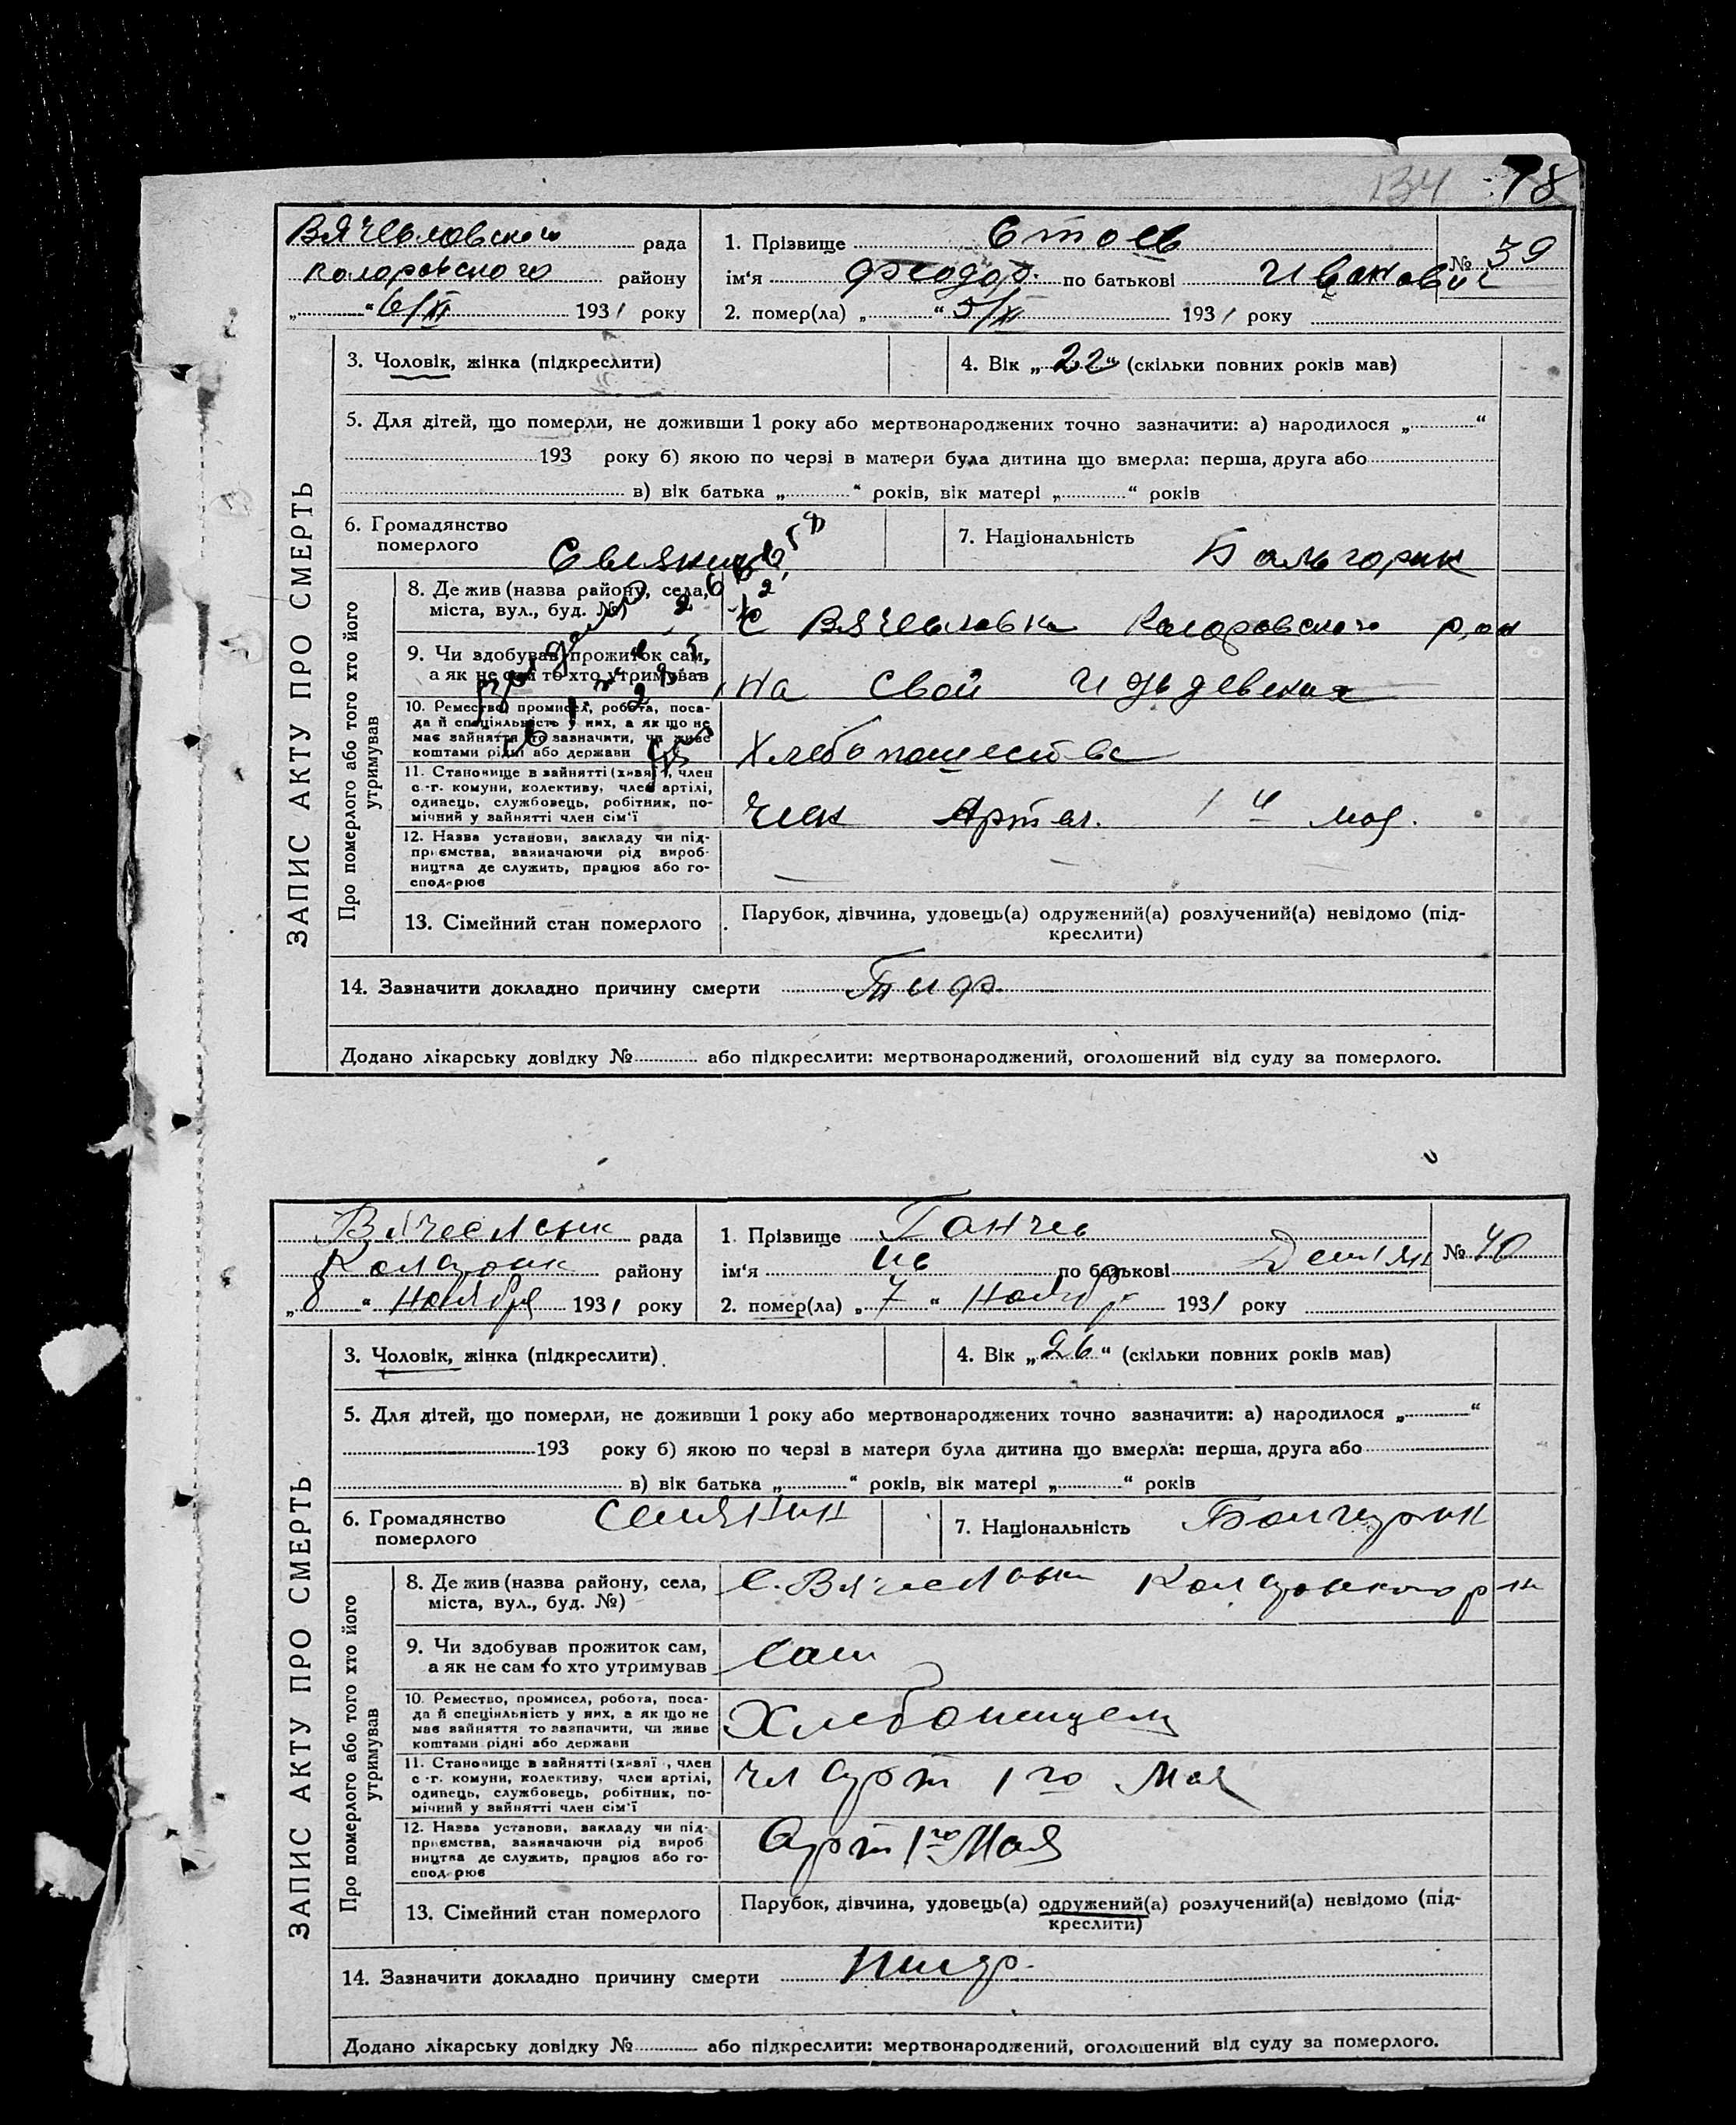 134 78
Вячеславского рада
Коларовского району
„ “ 6/XI 1931 року
1. Прізвище Стоев
№ 39
ім‘я Феодор. по батькові Иванович
2. помер(ла) „ “ 5/XI 1931 року
ЗАПИС АКТУ ПРО СМЕРТЬ
3. Чоловік, жінка (підкреслити)
4. Вік „22“ (скільки повних років мав)
5. Для дітей, що померли, не доживши 1 року або мертвонароджених точно зазначити: а) народилося „ “
193 року б) якою по черзі в матери була дитина що вмерла: перша, друга або
в) вік батька „ “ років, вік матері „ “ років
6. Громадянство
померлого
7. Національність
Про померлого або того хто його
утримував
8. Де жив (назва району, села,
міста, вул., буд. №)
С Вячеславка Коларовского
9. Чи здобував прожиток сам,
а як не сам то хто утримував
на свой
10. Ремество, промисел, робота, поса-
да й спеціяльність у них, а як що не
має зайняття то зазначити, чи живе
коштами рідні або держави
11. Становище в зайнятті (хазяї , член
с.-г. комуни, колективу, член артілі,
одинець, службовець, робітник, по-
мічний у зайнятті член сім‘ї
член Артел. 1 й мая.
12. Назва установи, закладу чи під-
приємства, зазначаючи рід вироб-
ництва де служить, працює або го-
сподарює
13. Сімейний стан померлого
Парубок, дівчина, удовець(а) одружений(а) розлучений(а) невідомо (під-
креслити)
14. Зазначити докладно причину смерти Тиф.
Додано лікарську довідку № або підкреслити: мертвонароджений, оголошений від суду за померлого.
рада
району
„8“ Ноября 1931 року
1. Прізвище Ганчев
№ 40
ім‘я Ив по батькові Демьян
2. помер(ла) „7“ Ноябр 1931 року
ЗАПИС АКТУ ПРО СМЕРТЬ
3. Чоловік, жінка (підкреслити)
4. Вік „26“ (скільки повних років мав)
5. Для дітей, що померли, не доживши 1 року або мертвонароджених точно зазначити: а) народилося „ “
193 року б) якою по черзі в матери була дитина що вмерла: перша, друга або
в) вік батька „ “ років, вік матері „ “ років
6. Громадянство
померлого
Селянин
7. Національність
Про померлого або того хто його
утримував
8. Де жив (назва району, села,
міста, вул., буд. №)
с. Вячеславка
9. Чи здобував прожиток сам,
а як не сам то хто утримував
сам
10. Ремество, промисел, робота, поса-
да й спеціяльність у них, а як що не
має зайняття то зазначити, чи живе
коштами рідні або держави
11. Становище в зайнятті (хазяї , член
с.-г. комуни, колективу, член артілі,
одинець, службовець, робітник, по-
мічний у зайнятті член сім‘ї
чл арт 1 го Мая
12. Назва установи, закладу чи під-
приємства, зазначаючи рід вироб
ництва де служить, працює або го-
сподарює
Арт 1го Мая
13. Сімейний стан померлого
Парубок, дівчина, удовець(а) одружений(а) розлучений(а) невідомо (під-
креслити)
14. Зазначити докладно причину смерти тиф.
Додано лікарську довідку № або підкреслити: мертвонароджений, оголошений від суду за померлого.